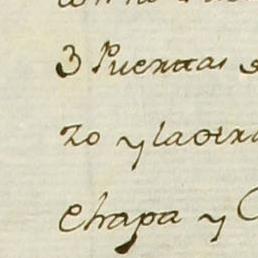 3 Puertas
zo y la otra
chapa y